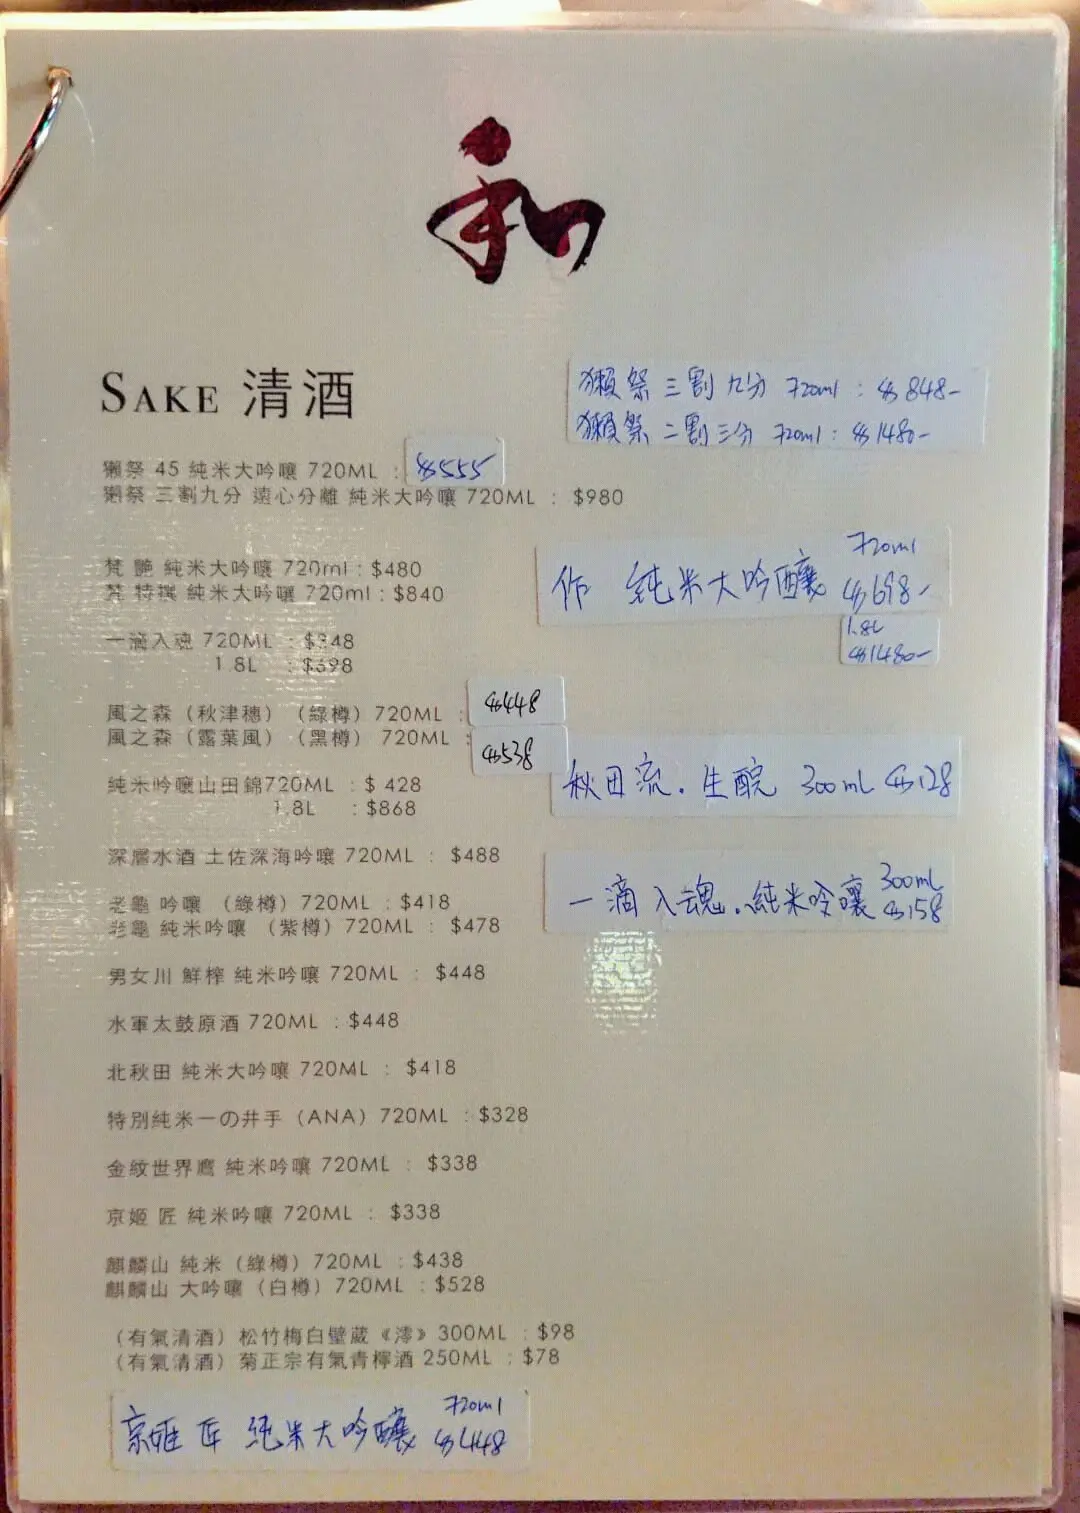 和
SAKE 清酒
獺祭 三割九分 720ml : $848-
獺祭 二割三分 720ml : $1480-
獺祭 45 純米大吟嚷 720ML : $555
獺祭 三割九分 遠心分離 純米大吟嚷 720ML : $980
梵 艷 純米大吟嚷 720ml : $480
梵 特撰 純米大吟嚷 720ml : $840
作 純米大吟釀 720ml $698-
1.8L $1480-
一滴入魂 720ML : $348
1.8L : $698
風之森（秋津穗）（綠樽）720ML : $448
風之森（露葉風）（黑樽）720ML : $538
純米吟嚷山田錦720ML : $ 428
1.8L : $868
秋田流．生酛 300mL $128
深層水酒 土佐深海吟嚷 720ML : $488
老龜 吟嚷 （綠樽）720ML : $418
老龜 純米吟嚷 （紫樽）720ML : $478
一滴入魂．純米吟釀 300mL $158
男女川 鮮榨 純米吟嚷 720ML : $448
水軍太鼓原酒 720ML : $448
北秋田 純米大吟嚷 720ML : $418
特別純米一の井手（ANA）720ML : $328
金紋世界鷹 純米吟嚷 720ML : $338
京姬 匠 純米吟嚷 720ML : $338
麒麟山 純米（綠樽）720ML : $438
麒麟山 大吟嚷（白樽）720ML : $528
（有氣清酒）松竹梅白壁蔵《澪》300ML : $98
（有氣清酒）菊正宗有氣青檸酒 250ML : $78
京姬 匠 純米大吟釀 720ml $448